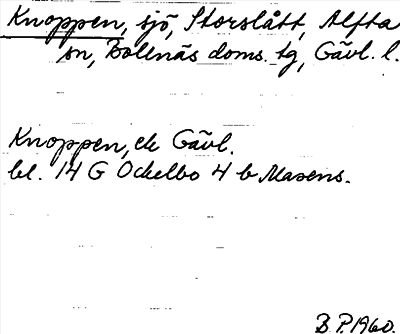 Knoppen, sjö, Storslått, Alfta
sn, Bollnäs doms. tg, Gävl. l.
Knoppen, ek Gävl.
bl. 14 G Ockelbo 4 b Masens.
B.P. 1960.